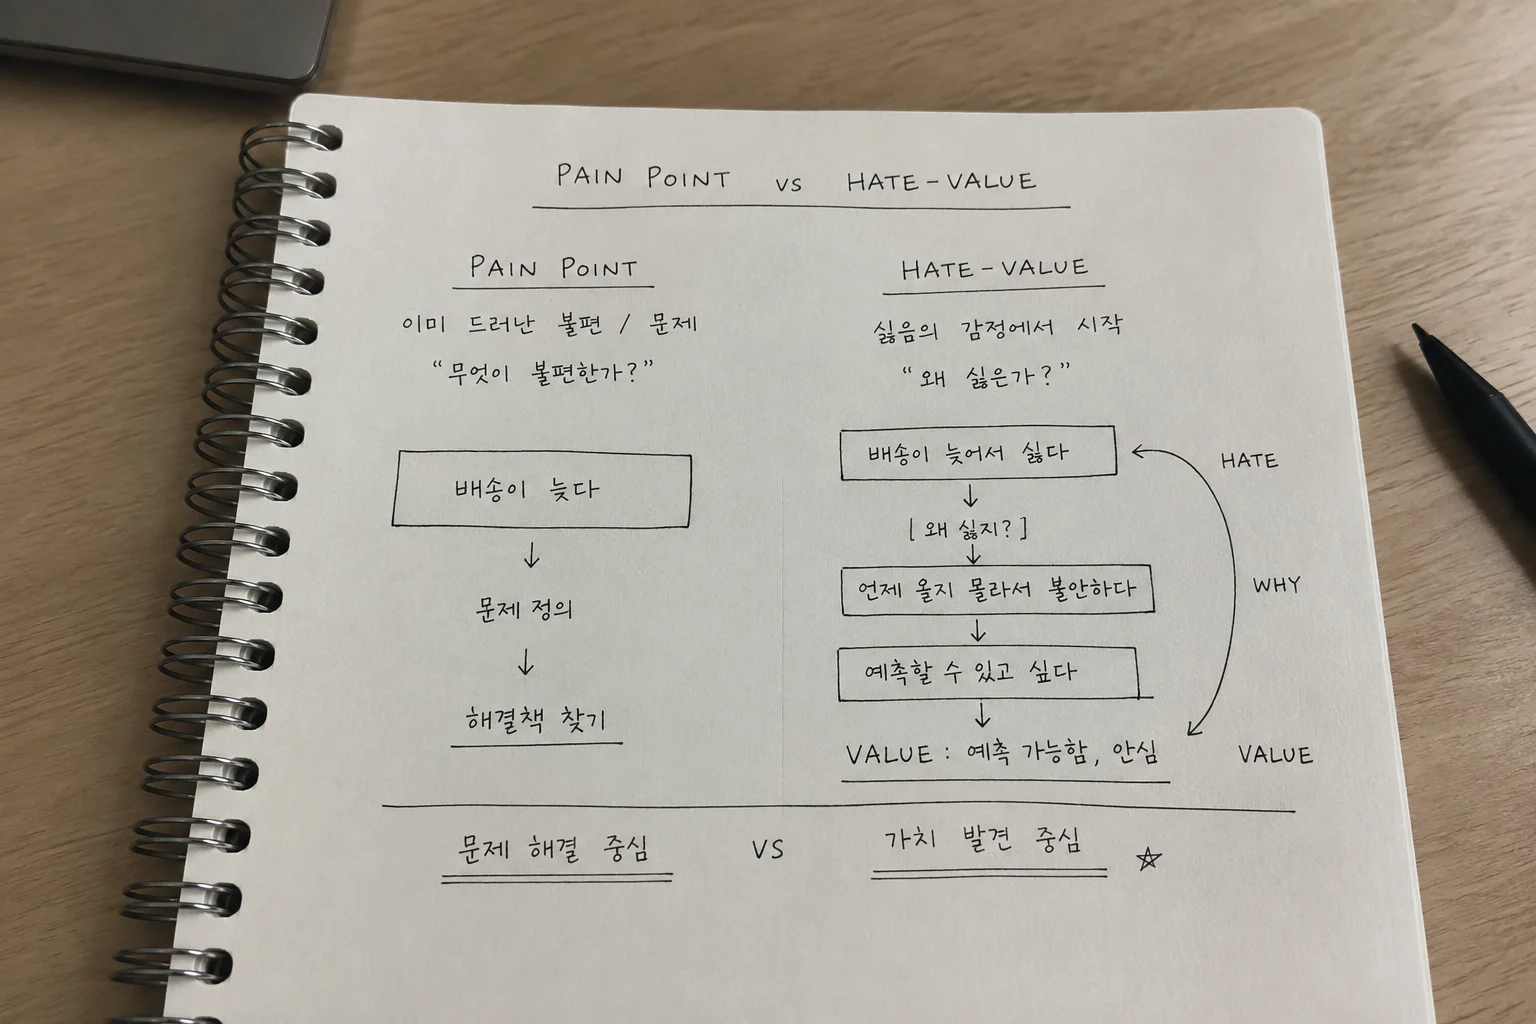 PAIN POINT vs HATE-VALUE
PAIN POINT
이미 드러난 불편 / 문제
“무엇이 불편한가?”
배송이 늦다
↓
문제 정의
↓
해결책 찾기
HATE-VALUE
싫음의 감정에서 시작
“왜 싫은가?”
배송이 늦어서 싫다
↓
[왜 싫지?]
↓
언제 올지 몰라서 불안하다
↓
예측할 수 있고 싶다
↓
VALUE : 예측 가능함, 안심
HATE
WHY
VALUE
문제 해결 중심 VS 가치 발견 중심 ☆